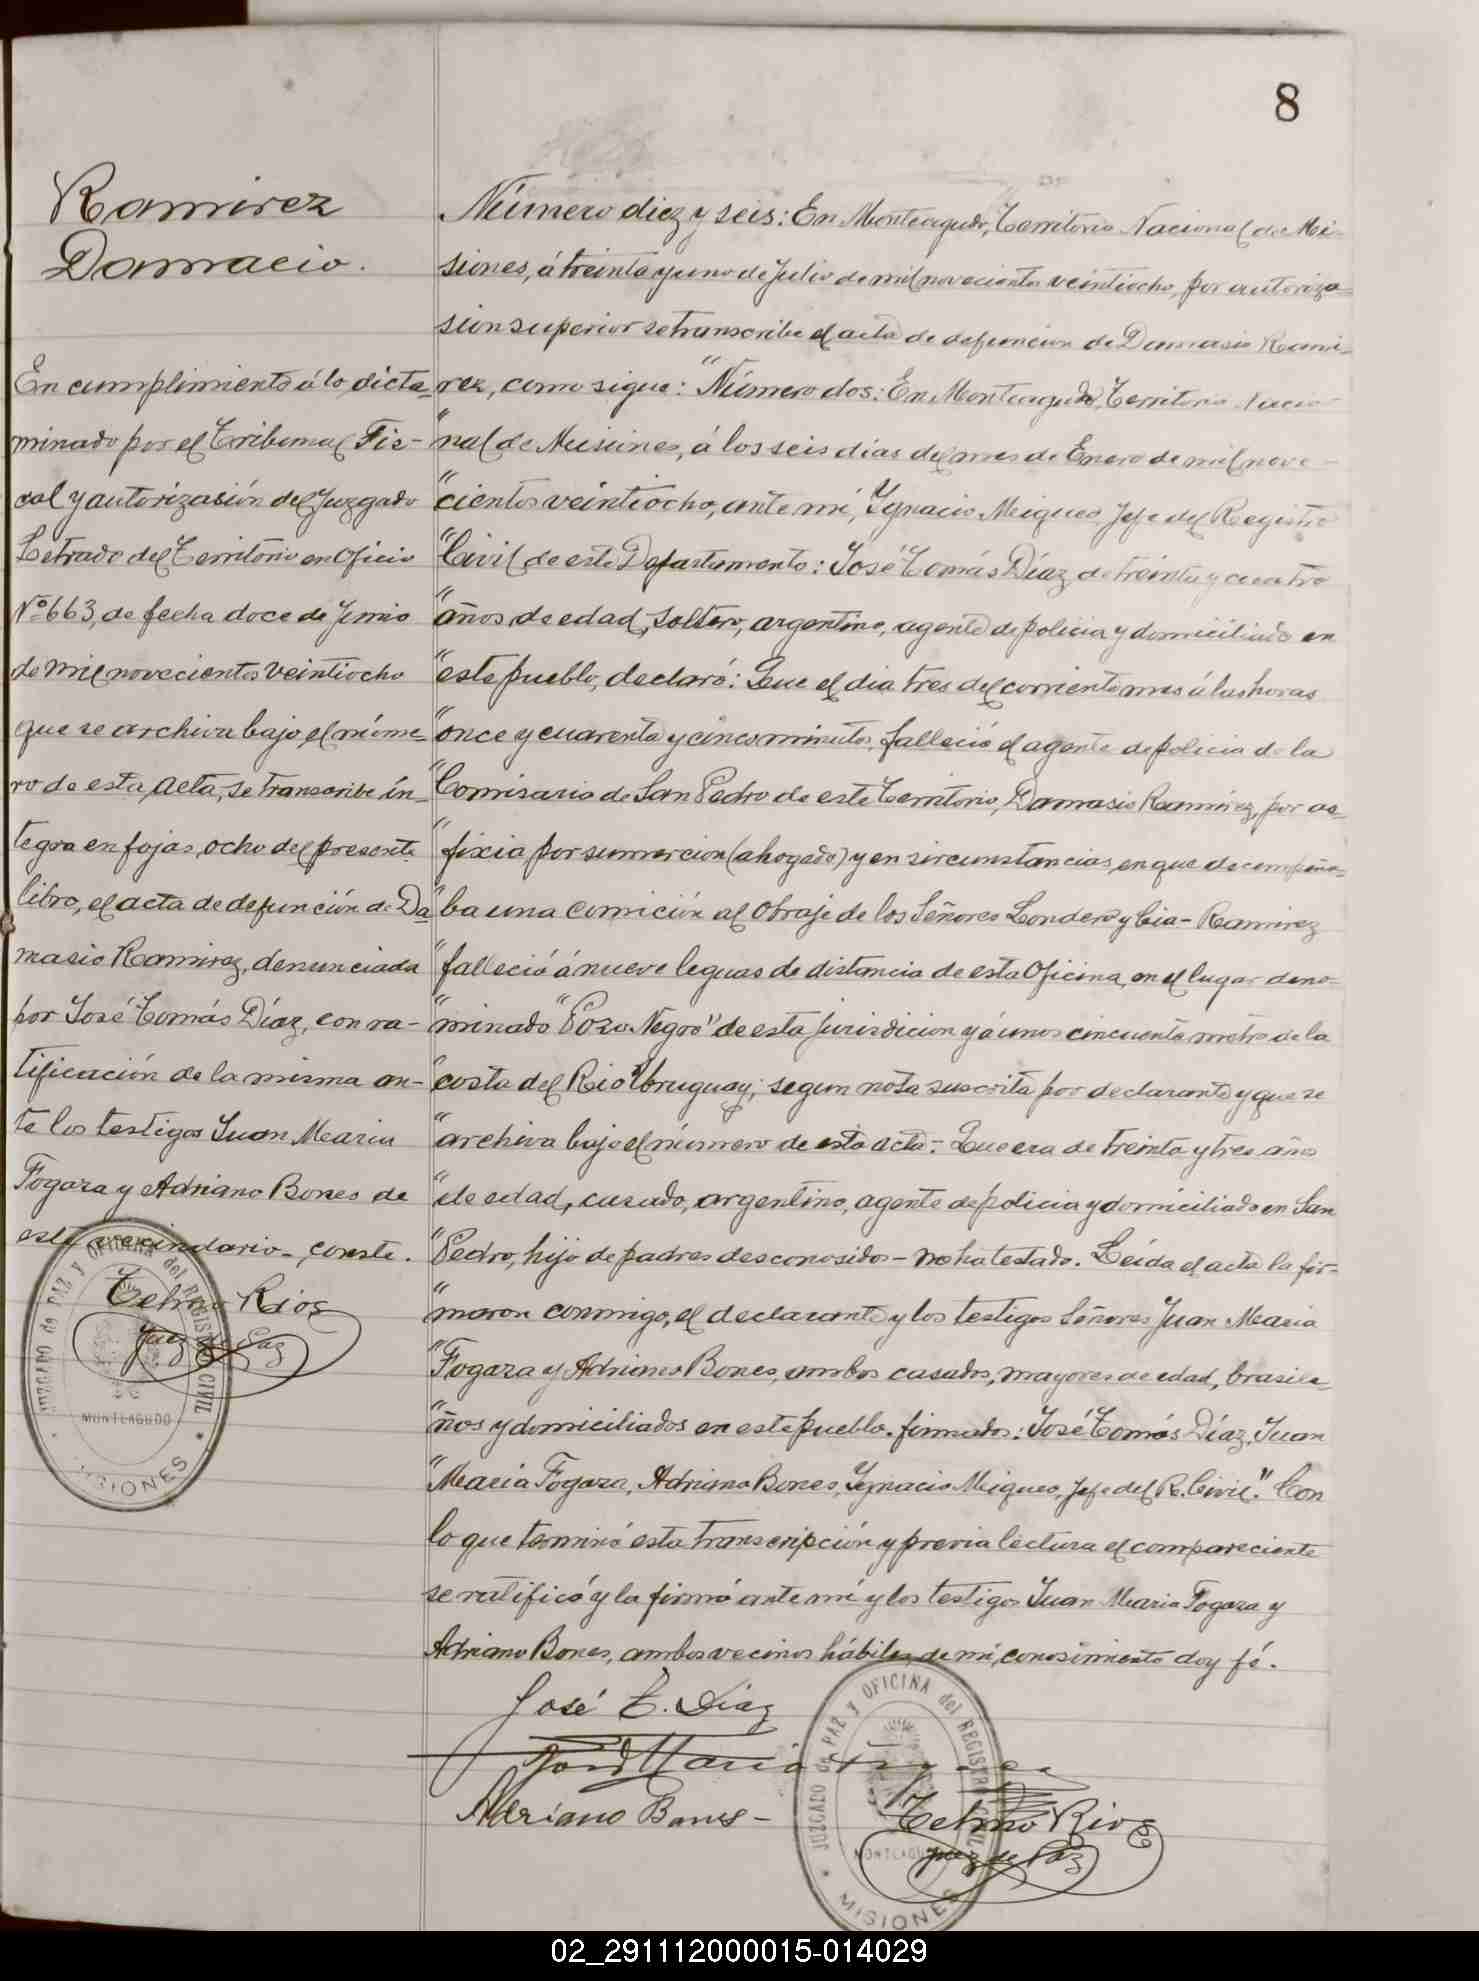 8
Ramirez
Damacio.
En cumplimiento á lo dicta-
minado por el Tribunal Fis-
cal y autorización del Juzgado
Letrado del Territorio en Oficio
Nº 663, de fecha doce de Junio
de mil novecientos veintiocho
que se archiva bajo el núme-
ro de esta acta, se transcribe ín-
tegra en fojas ocho del presente
libro, el acta de defunción de Da-
masio Ramirez, denunciada
por José Tomás Díaz, con ra-
tificación de la misma an-
te los testigos Juan Maria
Fogaza y Adriano Bones de
este vecindario - conste.
Telmo Rios
Juez de Paz
JUZGADO de PAZ y OFICINA del REGISTRO CIVIL
MONTEAGUDO
MISIONES
Número diez y seis: En Monteagudo, Territorio Nacional de Mi-
siones, á treinta y uno de Julio de mil novecientos veintiocho, por autoriza-
sion superior se transcribe el acta de defuncion de Damasio Rami-
rez, como sigue: "Número dos: En Monteagudo, Territorio Nacio-
"nal de Misiones, á los seis días del mes de Enero de mil nove-
"cientos veintiocho, ante mí, Ygnacio Migueo Jefe del Registro
"Civil de este Departamento: José Tomás Díaz de treinta y cuatro
"años de edad, soltero, argentino, agente de policia y domiciliado en
"este pueblo, declaró: Que el dia tres del corriente mes á las horas
"once y cuarenta y cinco minutos, falleció el agente de policia de la
"Comisaria de San Pedro de este Territorio, Damasio Ramirez, por as-
"fixia por sumercion (ahogado) y en sircunstancias en que decempeña-
"ba una comición al Obraje de los Señores Londero y Cia - Ramirez
"falleció á nueve leguas de distancia de esta Oficina, en el lugar deno-
"minado "Pozo Negro" de esta jurisdicion y á unos cincuenta metros de la
"costa del Rio Uruguay; segun nota suscrita por declarante y que se
"archiva bajo el número de esta acta. - Que era de treinta y tres años
"de edad, casado, argentino, agente de policia y domiciliado en San
"Pedro, hijo de padres desconosidos - no ha testado. Leída el acta la fir-
"maron conmigo, el declarante y los testigos Señores Juan Maria
"Fogaza y Adriano Bones, ambos casados, mayores de edad, brasile-
"ños y domiciliados en este pueblo. firmados: José Tomás Díaz, Juan
"Maria Fogaza, Adriano Bones, Ygnacio Migueo, Jefe del R. Civil." Con
lo que terminó esta transcripción y previa lectura el compareciente
se ratificó y la firmó ante mí y los testigos Juan Maria Fogaza y
Adriano Bones, ambos vecinos hábiles, de mi conosimiento doy fé.
José T. Diaz
Maria
Adriano Bones -
Telmo Rios
Juez de Paz
JUZGADO de PAZ y OFICINA del REGISTRO CIVIL
MONTEAGUDO
MISIONES
02_291112000015-014029